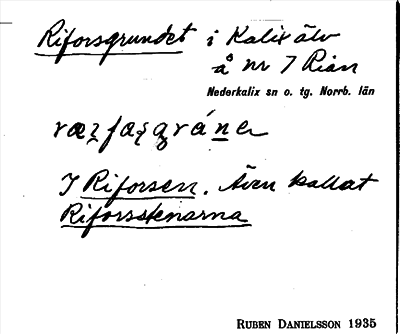 Riforsgrundet i Kalix älv
å nr 7 Rian
Nederkalix sn o. tg. Norrb. län
I Riforsen. Även kallat
Riforsstenarna
RUBEN DANIELSSON 1935